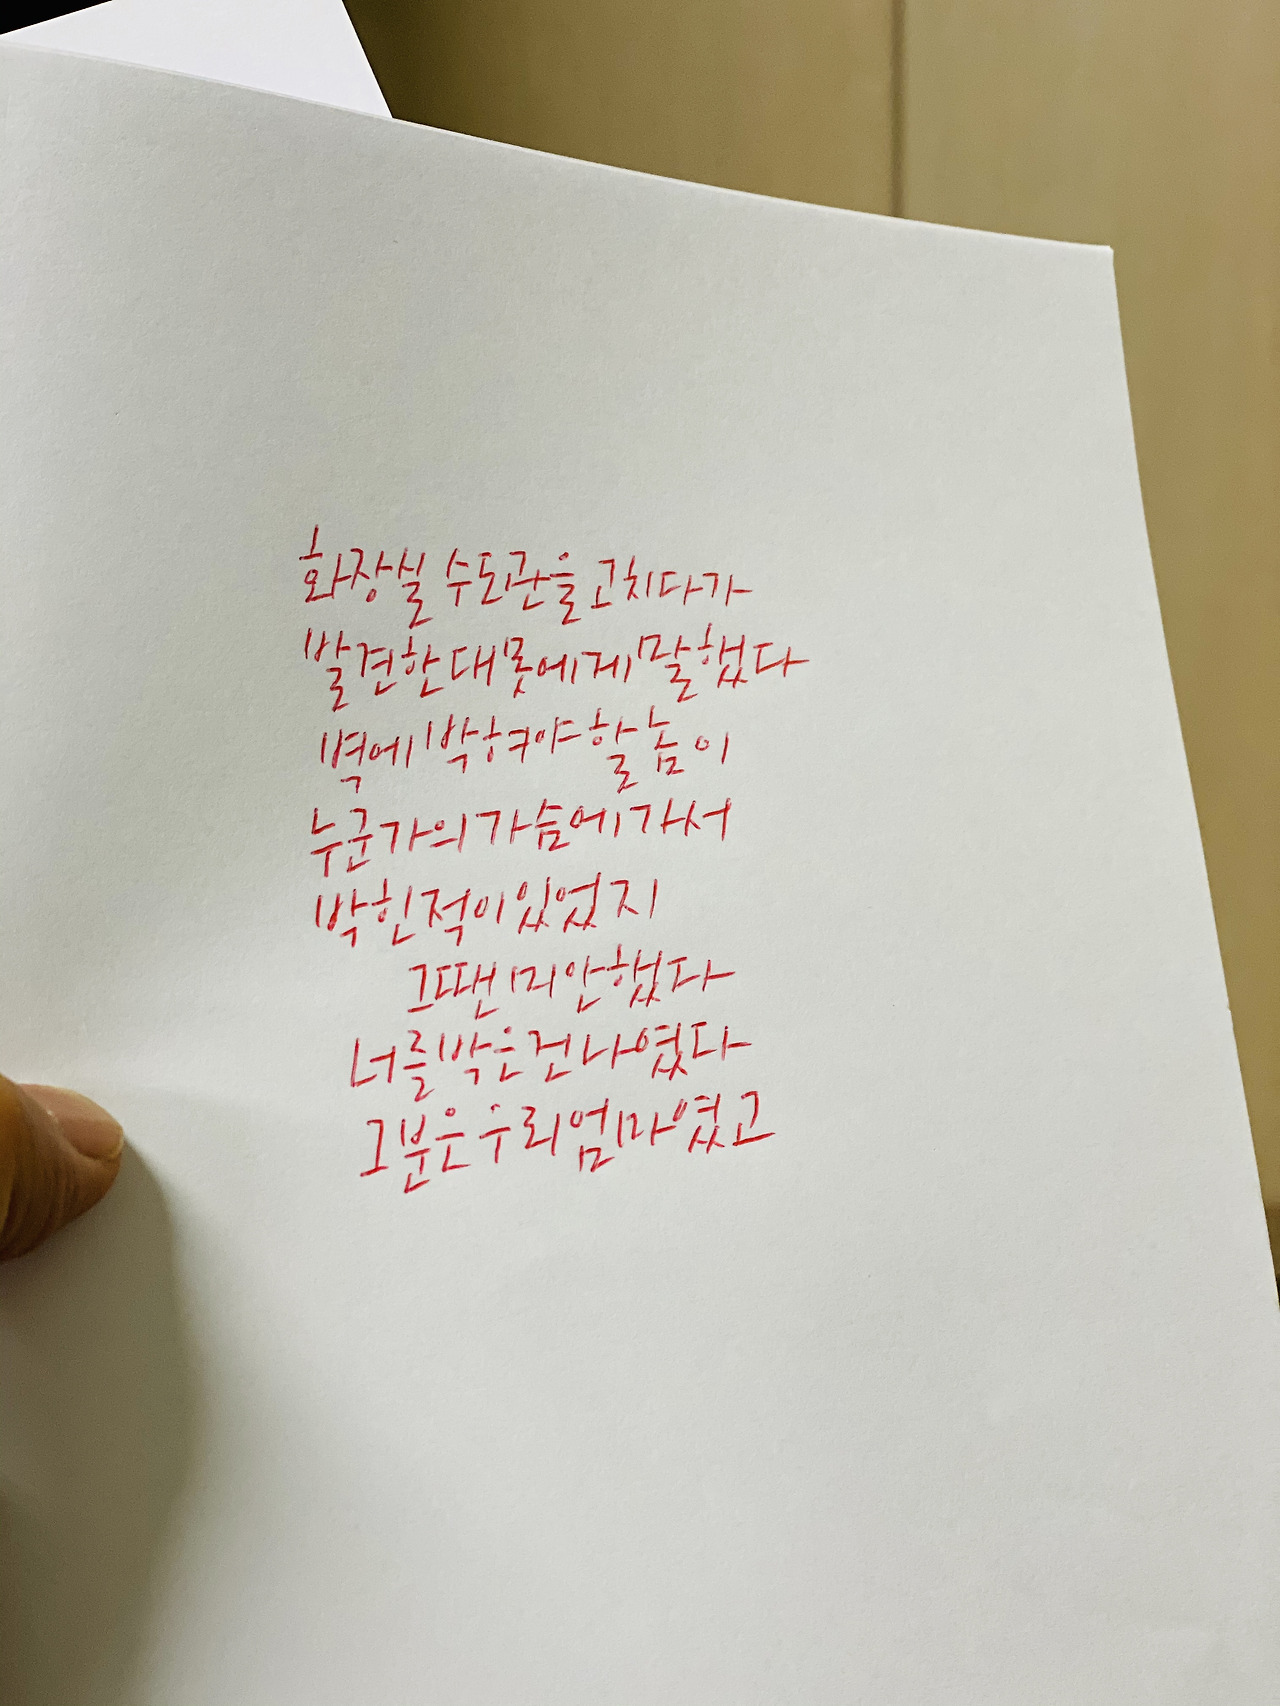 화장실 수도관을 고치다가
발견한 대못에게 말했다
벽에 박혀야 할 놈이
누군가의 가슴에 가서
박힌 적이 있었지
그땐 미안했다
너를 박은 건 나였다
그분은 우리 엄마였고